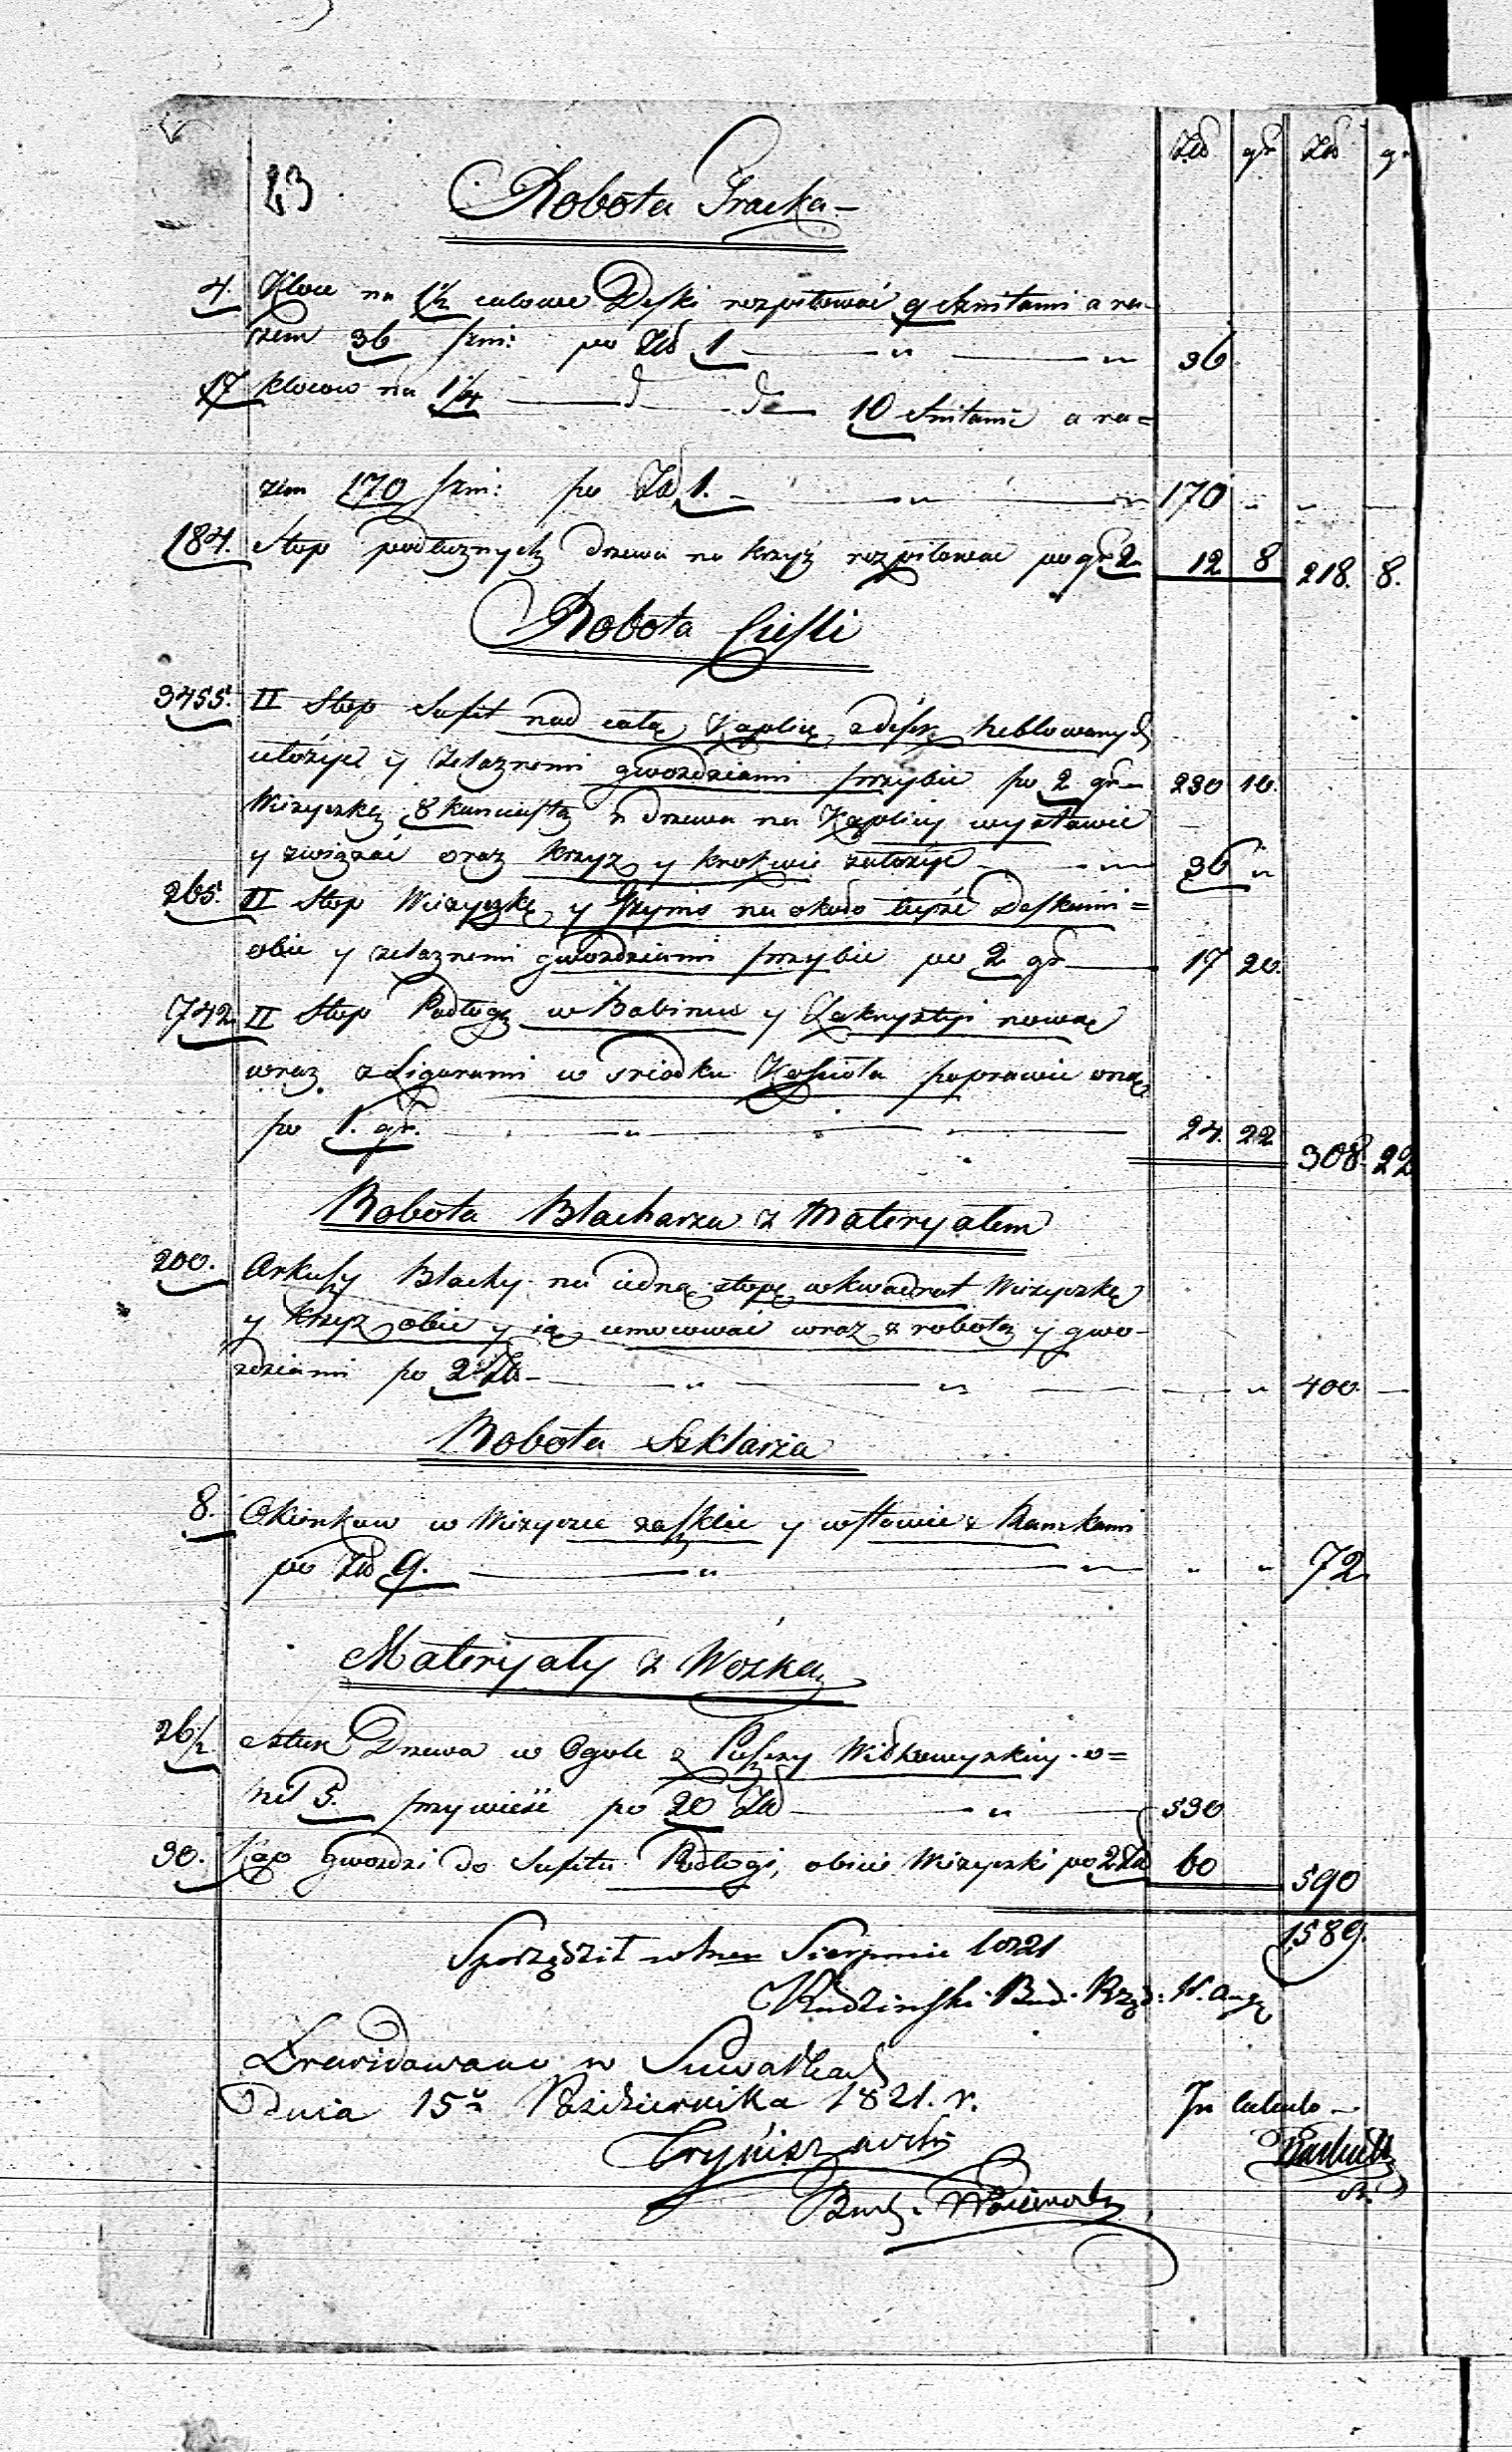 Zło gr Zło gr
23. Robota Tracka
4. Kloce na 1½ calowe Deski rozpiłować 9 sznitami a ra-
zem 36 szni: po Zło 1 — " — " 36
17 klocow na 1¼ — d — do — 10 sznitami a ra=
zem 170 szni: po Zło 1. — " — 170 " "
184. Stop podłuznych drzewa na krzyż rozpiłować po gr 2 12 8 218. 8.
Robota Cieśli
3455. II Stop Sufit nad całą Kaplicą z desk heblowanych
ułożyć y żelaznemi gwozdziami przybić po 2 gr 230 10.
Wieżyczkę 8 kanciastą z drzewa na Kaplicy wystawić
y związać oraz krzyż y krokwie założyć — " 36 "
265. II Stop Wieżyczkę y Gzyms na około tępże Deskami=
obić y żelaznemi gwozdziami przybić po 2 gr — 17 20.
742 II Stop Podłogę w Babincu y Zakrystyi nową
wraz z Ligarami w srzodku Kościoła poprawić oną
po 1. gr. — " — 24. 22 308. 22
Robota Blacharza z Materyałem
200. Arkuszy Blachy na iedną stopę w kwadrat Wieżyczkę
y Krzyż obić y ią umocować wraz z robotą y gwo-
zdziami po 2 Zło — " — " — " 400. —
Robota Szklarza
8. Okienkow w Wieżyczce zaszklić y wstawić z Ramkami
po Zło 9. — " — " " " 72
Materyały z Wózką
26/2. sztuk Drzewa w Ogule z Puszczy
Nro 5. przywieść po 20 Zło — " — 530
30. Kop gwozdzi do Sufitu Podłogi, obicia Wieżyczki po 2 Zło 60 590
1589.
Sporządził w Sierpniu 1821
Rudzinski Bud. Rząd. W. Aug
Zrewidowano w Suwałkach
Dnia 15º Pazdziernika 1821. r.
In calculo
Bud. Woiewodz